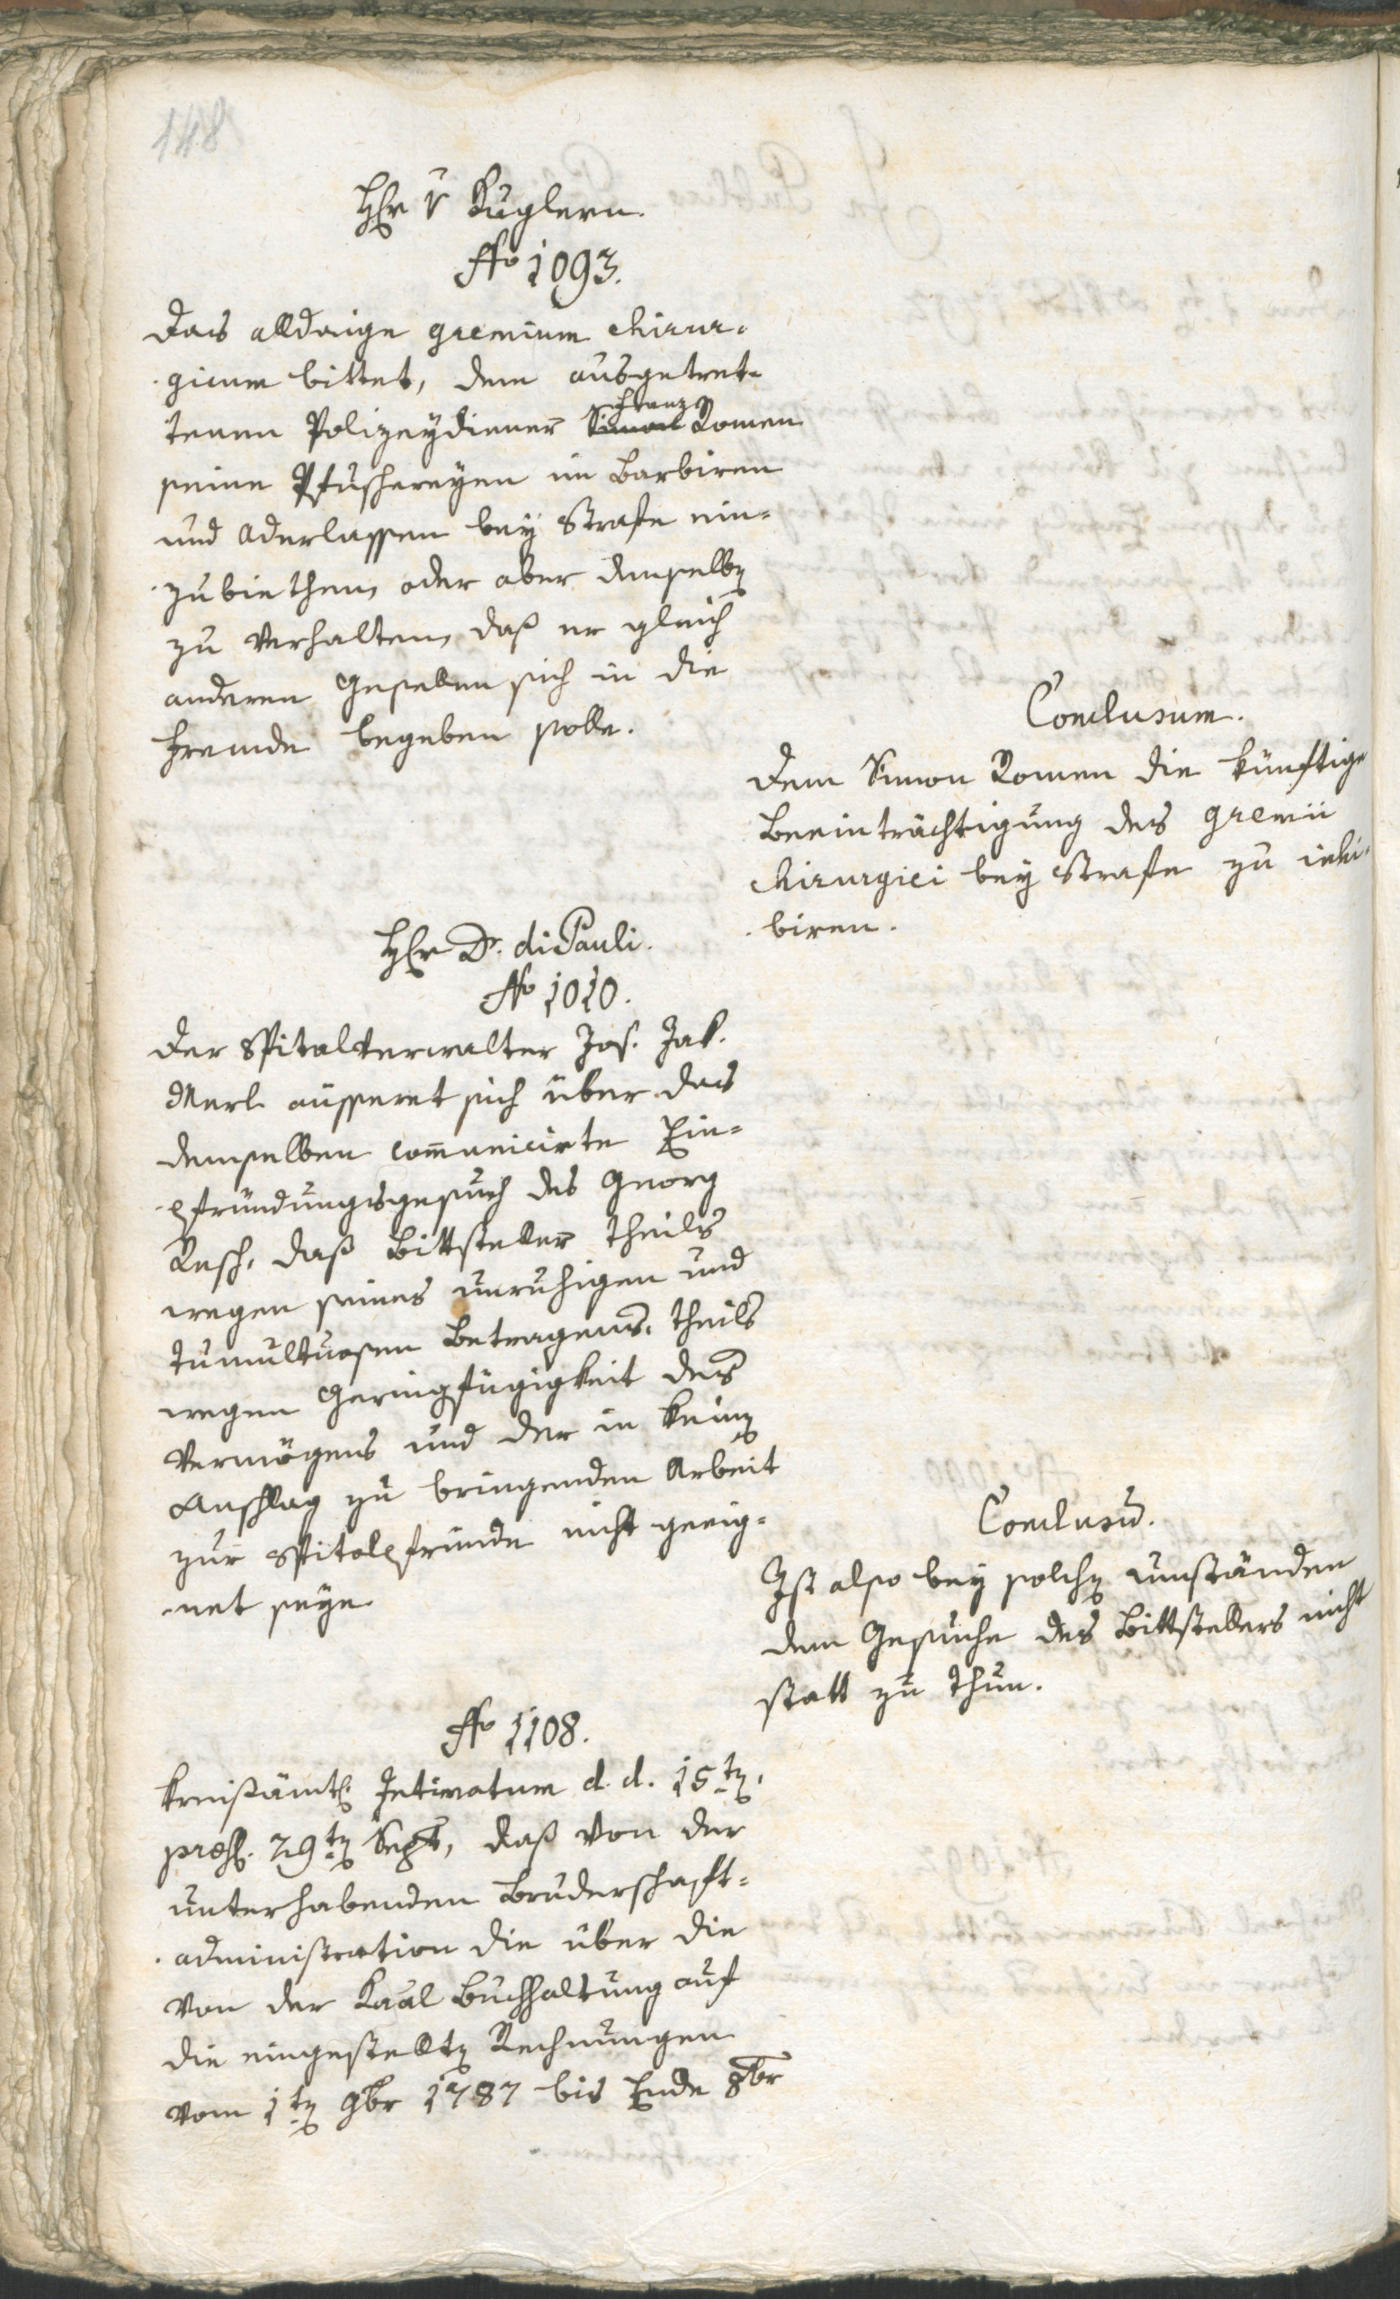 148
Hr v Kuglern.
No 1093.
Das alldaige gremium chirur-
gicum bittet, dem ausgetret-
tenen Polizeydiener Simon Franz Romen
seine Pfuschereyen im Barbiren
und Aderlassen bey Strafe ein-
zubiethen, oder aber denselben
zu verhalten, daß er gleich
anderen Gesellen sich in die
Fremde begeben solle.
Conclusum.
Dem Simon Romen die künftige
Beeinträchtigung des gremii
chirurgici bey Strafe zu inhi-
biren.
Hr Dr. di Pauli.
No 1010.
Der Spitalverwalter Jos. Jak.
Merl äusseret sich über das
demselben communicirte Ein-
pfründungsgesuch des Georg
Resch, daß Bittsteller theils
wegen seines unruhigen und
tumultuosen Betragens, theils
wegen Geringfügigkeit des
Vermögens und der in keinen
Anschlag zu bringenden Arbeit
zur Spitalpfründe nicht geeig-
net seye.
Conclusum.
Ist also bey solchen umständen
dem Gesuche des Bittstellers nicht
statt zu thun.
No 1108.
Kreisämtl. Intimatum d. d. 15ten,
præs. 29ten Sept, daß von der
unterhabenden Bruderschaft-
administration die über die
von der Kaal Buchhaltung auf
die eingestellten Rechnungen
vom 1ten 9br 1787 bis Ende 8br